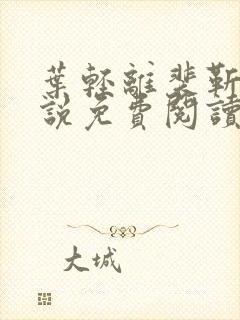 葉輕離裴靳
說免費閱讀
大城